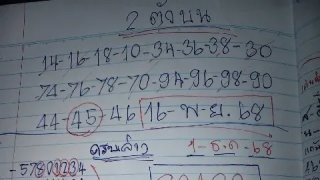 2 ตัวบน
14-16-18-10-34-36-38-30
74-76-78-70-94-96-98-90
44-45-46 16-พ-ย. 68
1-ธ.ค-68
-57801234